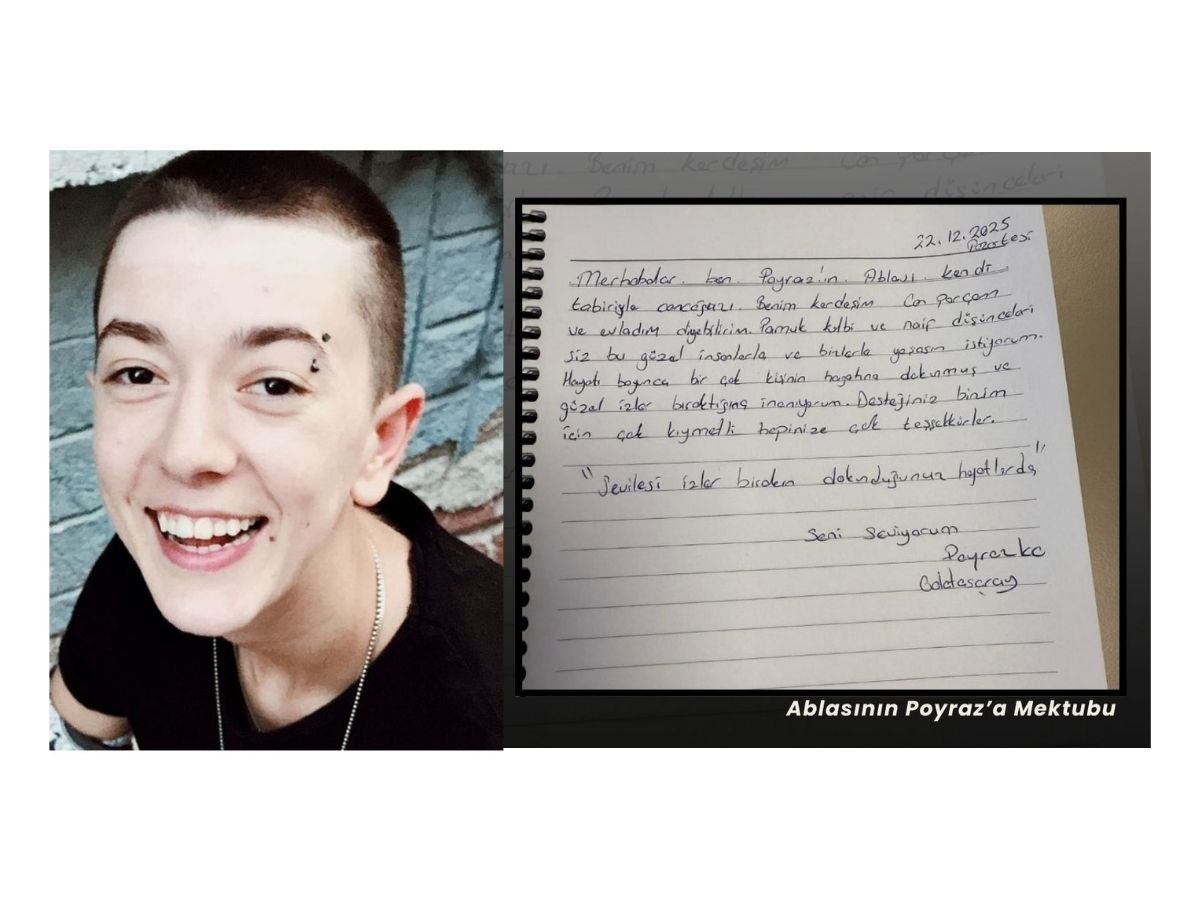 22.12.2025
Pazartesi
Merhabalar ben Poyraz'ın Ablası kendi
tabiriyle cancağazı. Benim kardeşim Can parçam
ve evladım diyebilirim. Pamuk kalbi ve naif düşünceleri
siz bu güzel insanlarla ve bizlerle yaşasın istiyorum.
Hayatı boyunca bir çok kişinin hayatına dokunmuş ve
güzel izler bıraktığına inanıyorum. Desteğiniz bizim
için çok kıymetli hepinize çok teşekkürler.
"Sevilesi izler bırakın dokunduğunuz hayatlarda"
Seni Seviyorum
Poyrazka
Galatasaray
Ablasının Poyraz'a Mektubu